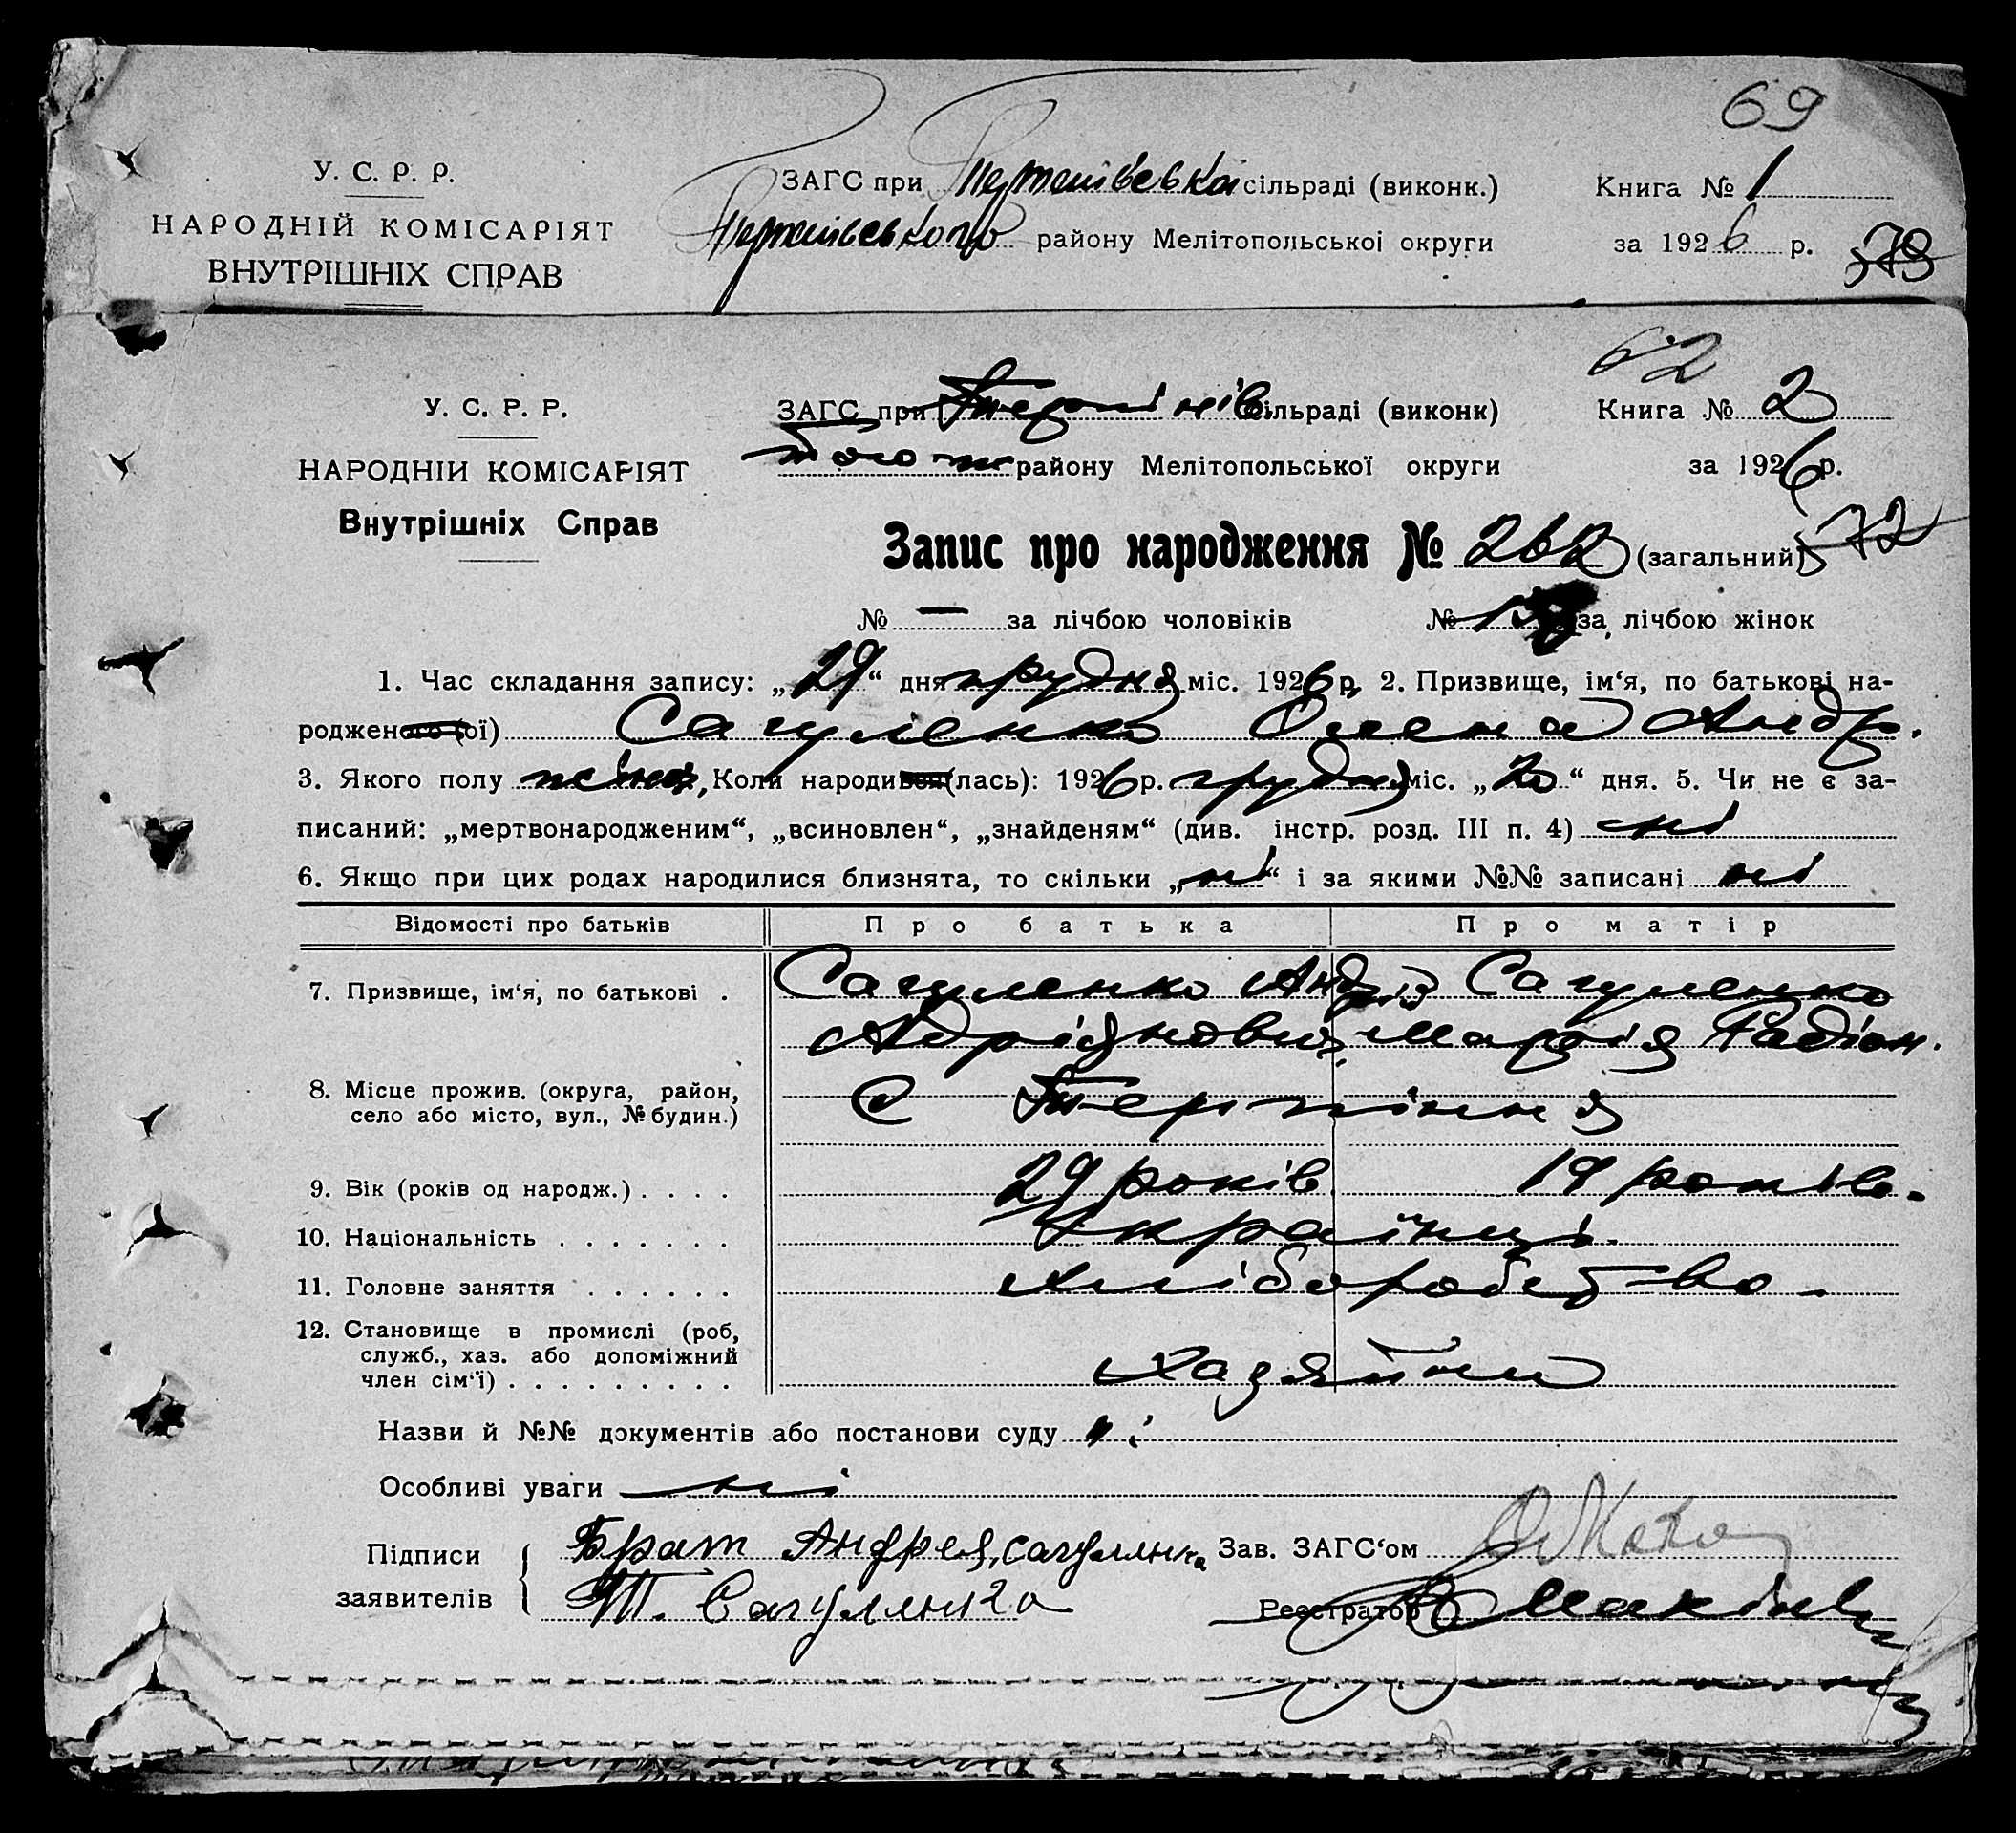 69
У. С. Р. Р.
НАРОДНІЙ КОМІСАРІЯТ
ВНУТРІШНІХ СПРАВ
ЗАГС при сільраді (виконк.)
району Мелітопольської округи
Книга № 1
за 1926 р.
73
62
У. С. Р. Р.
НАРОДНІЙ КОМІСАРІЯТ
Внутрішніх Справ
ЗАГС при сільраді (виконк)
того ж району Мелітопольської округи
Книга № 2
за 1926 р.
Запис про народження № 262 (загальний) 72
№ — за лічбою чоловіків № за лічбою жінок
1. Час складання запису: „29“ дня грудня міс. 1926 р. 2. Призвище, ім‘я, по батькові на-
родженого (ої) Сагуленко Олена Андр.
3. Якого полу жіноч, Коли народився (лась): 1926 р. грудня міс. „20“ дня. 5. Чи не є за-
писаний: „мертвонародженим“, „всиновлен“, „знайденям“ (див. інстр. розд. III п. 4) ні
6. Якщо при цих родах народилися близнята, то скільки „ні“ і за якими №№ записані ні
Відомості про батьків Про батька Про матір
7. Призвище, ім‘я, по батькові . Сагуленко Андрій Сагуленко
Адріянович Марія Радіон.
8. Місце прожив. (округа, район,
село або місто, вул., № будин.)
С Терпіння
9. Вік (років од народж.) . . . . 29 років 19 років.
10. Національність . . . . . . . Українці.
11. Головне заняття . . . . . . Хліборобство.
12. Становище в промислі (роб,
служб., хаз. або допоміжний
член сім‘ї) . . . . . . . . . Хазяйни
Назви й №№ документів або постанови суду ні
Особливі уваги ні
Підписи
заявителів
Брат Андрея, сагулянка
Т. Сагулянко
Зав. ЗАГС‘ом
Реєстратор